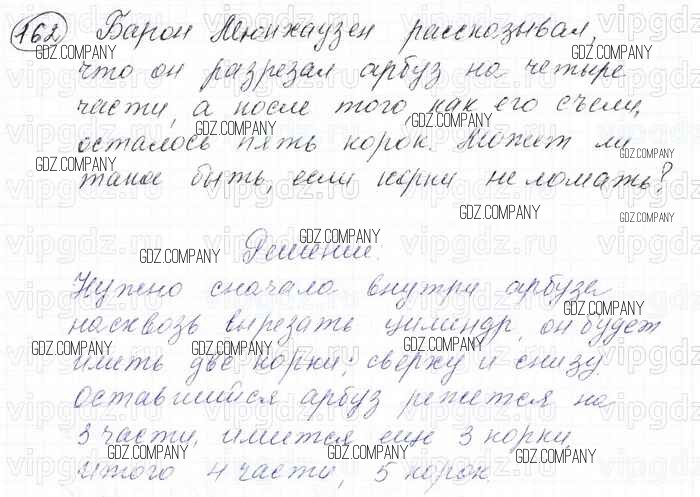 162 Барон Мюнхаузен рассказывал,
что он разрезал арбуз на четыре
части, а после того как его съели,
осталось пять корок. Может ли
такое быть, если корки не ломать?
Решение.
Нужно сначала внутри арбуза
насквозь вырезать цилиндр, он будет
иметь две корки: сверху и снизу.
Оставшийся арбуз режется на
3 части, имеется еще 3 корки
итого 4 части, 5 корок.